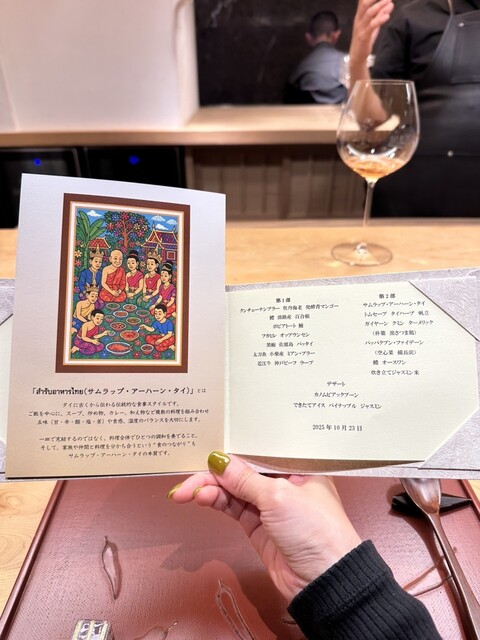 「สำรับอาหารไทย(サムラップ・アーハーン・タイ)」とは
タイに古くから伝わる伝統的な食事スタイルです。
ご飯を中心に、スープ、炒め物、カレー、和え物など複数の料理を組み合わせ
五味（甘・辛・酸・塩・苦）や食感、温度のバランスを大切にします。
一皿で完結するのではなく、料理全体でひとつの調和を奏でること。
そして、家族や仲間と料理を分かち合うという“食のつながり”も
サムラップ・アーハーン・タイの本質です。
第1部
クンチェーナンプラー 牡丹海老 発酵青マンゴー
鱧 淡路産 百合根
ポピアトート 鰻
フカヒレ オップウンセン
黒鮑 佐渡島 パッタイ
太刀魚 小柴産 ミアン・プラー
近江り 神戸ビーフ ラープ
第2部
サムラップ・アーハーン・タイ
トムセーブ タイハーブ 帆立
ガイヤーン クミン ターメリック
パッパクブン・ファイデーン
鱧 オースワン
炊き立てジャスミン米
デザート
カノムビアックプーン
できたてアイス パイナップル ジャスミン
2025年10月23日